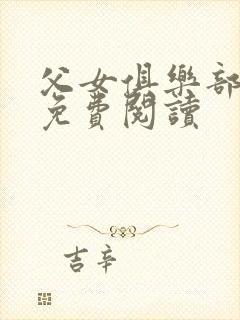 父女俱樂部
免費閱讀
吉辛